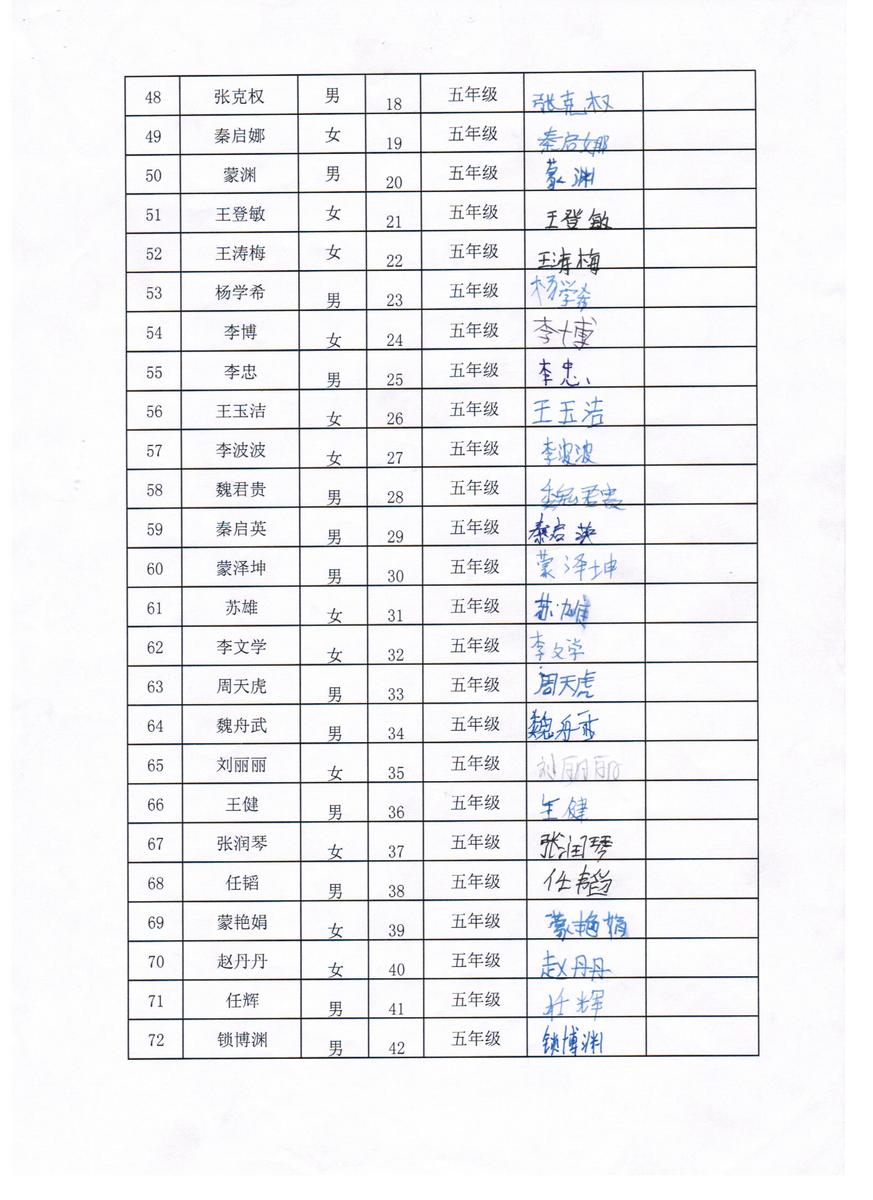 48 张克权 男 18 五年级 张克权
49 秦启娜 女 19 五年级 秦启娜
50 蒙渊 男 20 五年级 蒙渊
51 王登敏 女 21 五年级 王登敏
52 王涛梅 女 22 五年级 王涛梅
53 杨学希 男 23 五年级 杨学希
54 李博 女 24 五年级 李博
55 李忠 男 25 五年级 李忠
56 王玉洁 女 26 五年级 王玉洁
57 李波波 女 27 五年级 李波波
58 魏君贵 男 28 五年级 魏君贵
59 秦启英 男 29 五年级 秦启英
60 蒙泽坤 男 30 五年级 蒙泽坤
61 苏雄 女 31 五年级 苏雄
62 李文学 女 32 五年级 李文学
63 周天虎 男 33 五年级 周天虎
64 魏舟武 男 34 五年级 魏舟武
65 刘丽丽 女 35 五年级 刘丽丽
66 王健 男 36 五年级 王健
67 张润琴 女 37 五年级 张润琴
68 任韬 男 38 五年级 任韬
69 蒙艳娟 女 39 五年级 蒙艳娟
70 赵丹丹 女 40 五年级 赵丹丹
71 任辉 男 41 五年级 任辉
72 锁博渊 男 42 五年级 锁博渊